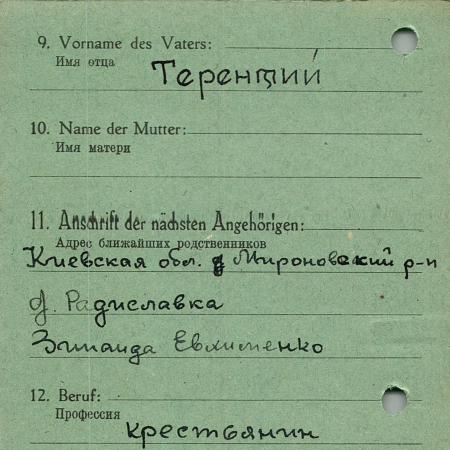 9. Vorname des Vaters:
Имя отца
Терентий
10. Name der Mutter:
Имя матери
11. Anschrift der nächsten Angehörigen:
Адрес ближайших родственников
Киевская обл. Мироновский р-н
д. Радиславка
Зинаида Евхименко
12. Beruf:
Профессия
крестьянин